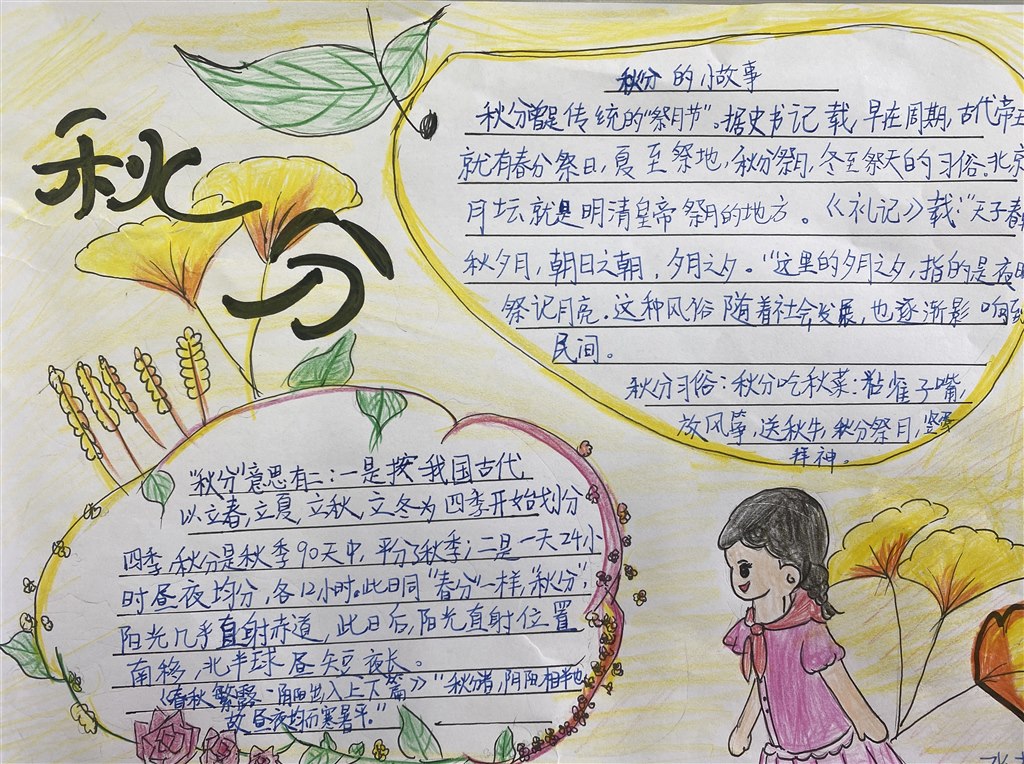 秋分
秋分的小故事
秋分曾是传统的“祭月节”。据史书记载,早在周期,古代帝王
就有春分祭日,夏至祭地,秋分祭月,冬至祭天的习俗。北京
月坛就是明清皇帝祭月的地方。《礼记》载:“天子春
秋夕月,朝日之朝,夕月之夕。”这里的夕月之夕,指的是夜晚
祭记月亮。这种风俗随着社会发展,也逐渐影响到
民间。
秋分习俗:秋分吃秋菜:粘雀子嘴,
放风筝,送秋牛,秋分祭月,竖蛋
拜神。
“秋分”意思有二:一是按我国古代
以立春,立夏,立秋,立冬为四季开始划分
四季,秋分是秋季90天中,平分了秋季;二是一天24小
时昼夜均分,各12小时。此日同“春分”一样,“秋分”,
阳光几乎直射赤道,此日后,阳光直射位置
南移,北半球昼短夜长。
《春秋繁露·阴阳出入上下篇》“秋分者,阴阳相半也,
故昼夜均而寒暑平。”